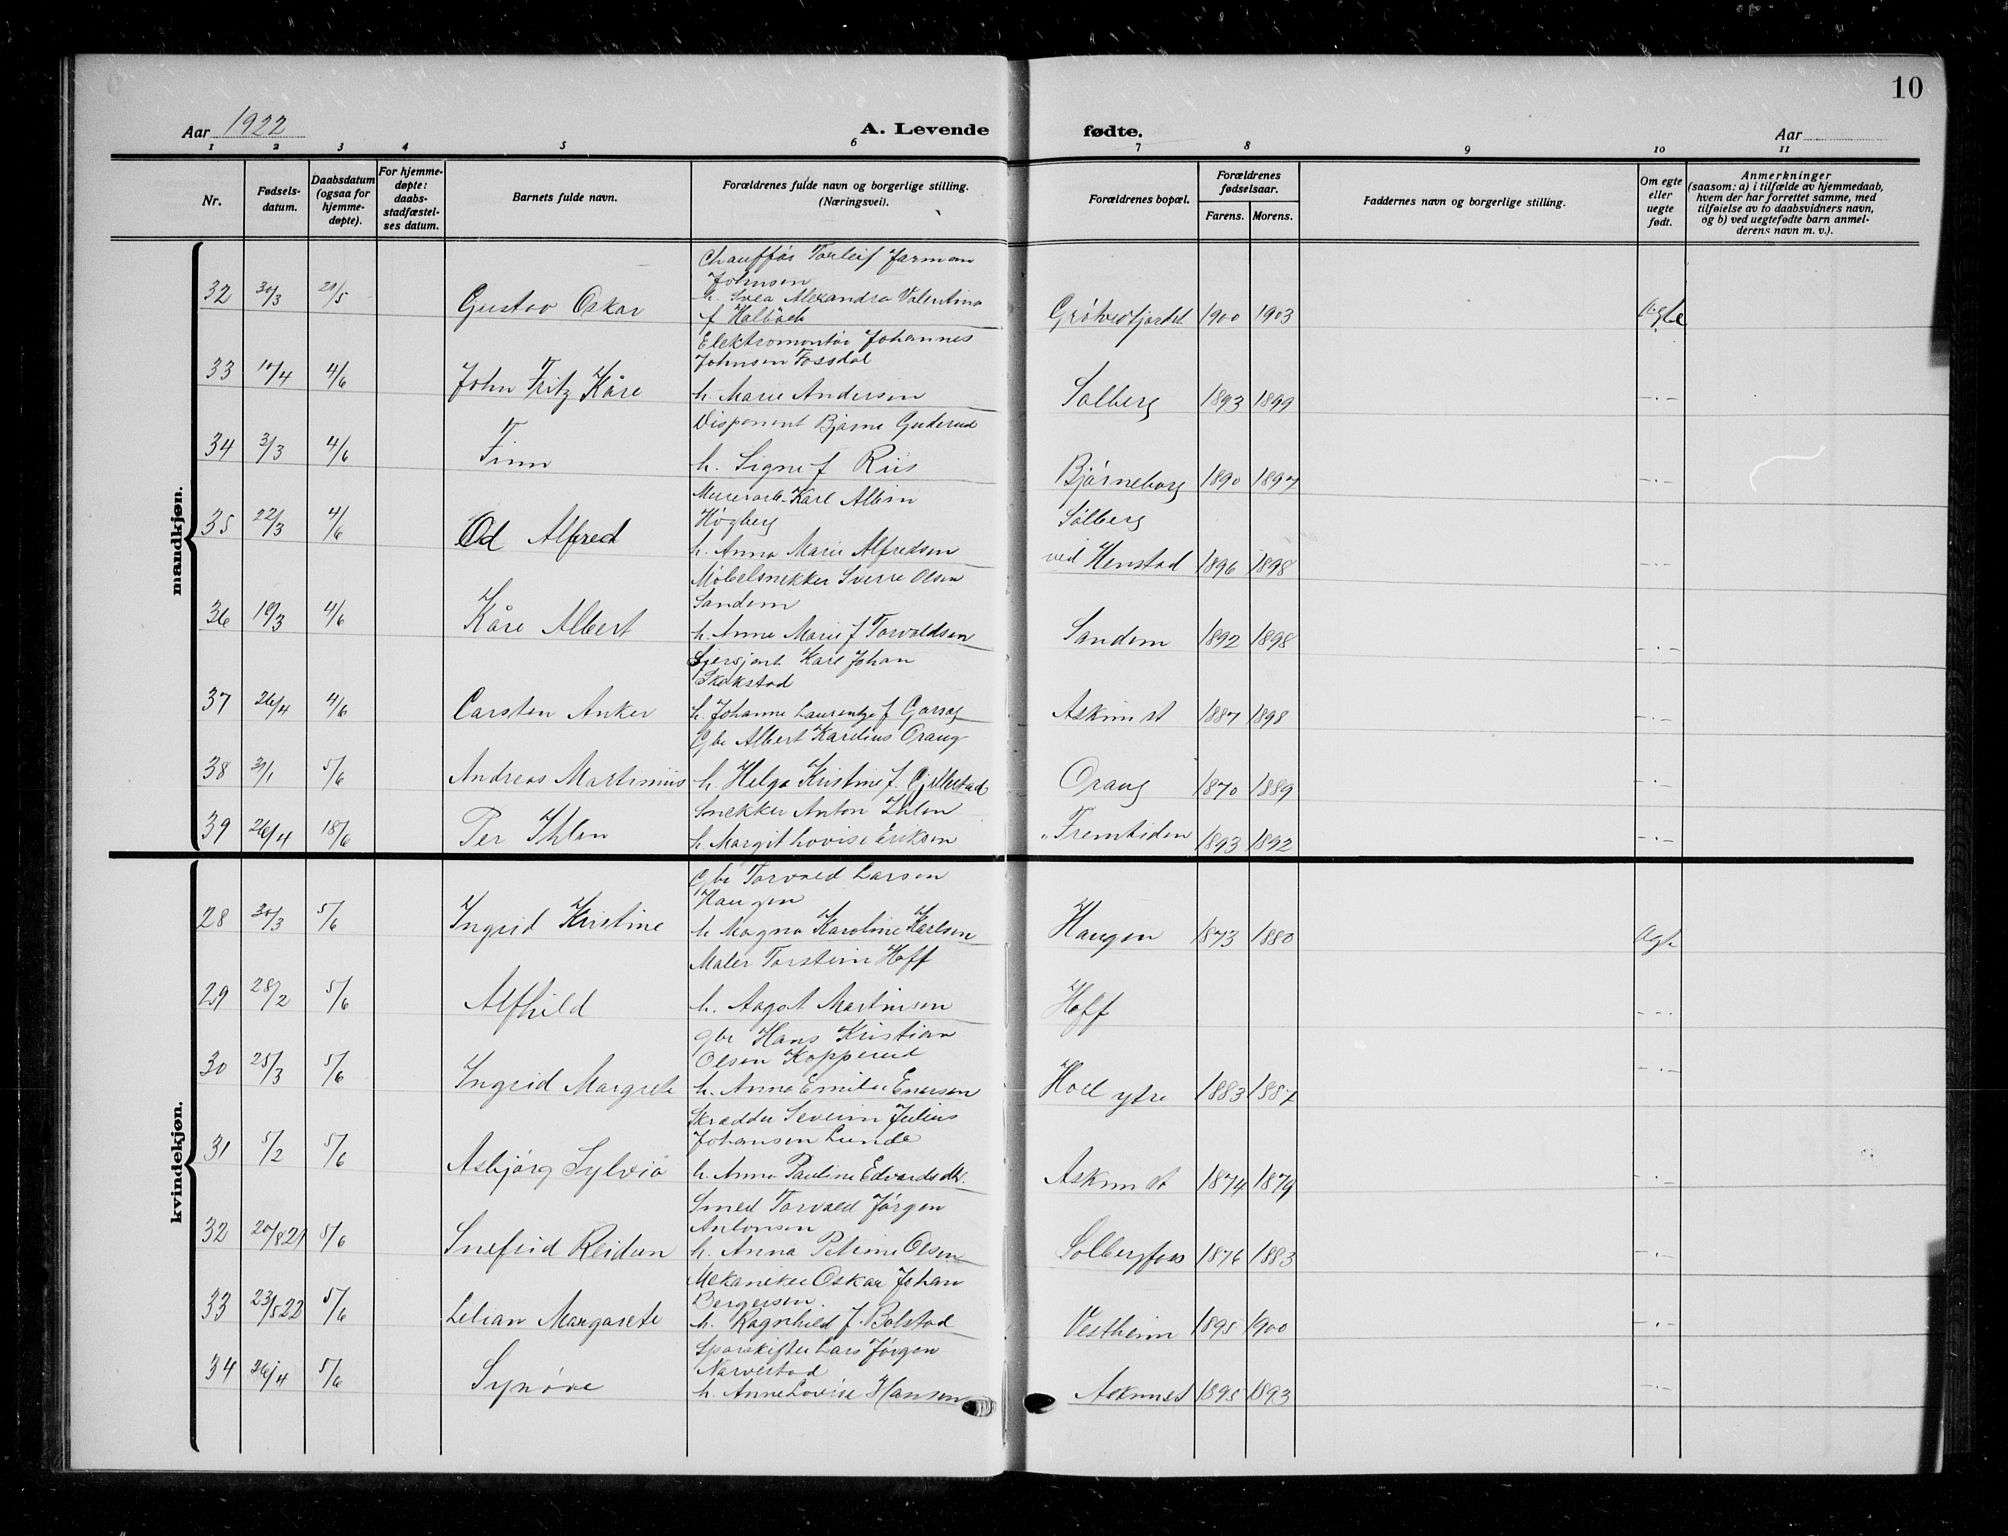 10
Aar 1922 A. Levende fødte. Aar
1 2 3 4 5 6 7 8 9 10 11
Nr.
Fødsels-
datum.
Daabsdatum
(ogsaa for
hjemme-
døpte).
For hjemme-
døpte:
daabs-
stadfæstel-
ses datum.
Barnets fulde navn.
Forældrenes fulde navn og borgerlige stilling.
(Næringsvei).
Forældrenes bopæl.
Forældrenes
fødselsaar.
Farens. Morens.
Faddernes navn og borgerlige stilling.
Om egte
eller
uegte
født.
Anmerkninger
(saasom: a) i tilfælde av hjemmedaab,
hvem der har forrettet samme, med
tilføielse av to daabsvidners navn,
og b) ved uegtefødte barn anmel-
derens navn m. v.).
mandkjøn.
Chauffør Torleif Jarman
Johnsen
h. Svea Alexandra Valentina
32 30/3 21/5 Gustav Oskar f Halbäck Grötvedfjordet 1900 1903 Egte
Elektromontør Johannes
Johnsen Fossdal
33 10/4 4/6 John Fritz Kåre h. Marie Andersen Solberg 1893 1899 -.-
Disponent Bjarne Guderud
34 3/3 4/6 Finn h. Signe f Riis Bjørneborg 1890 1897 -.-
Murerarb. Karl Albin
Högberg Solberg
35 22/3 4/6 Od Alfred h. Anna Marie Alfredsen ved Henstad 1896 1898 -.-
Møbelsnekker Sverre Olsen
Sandem
36 19/3 4/6 Kåre Albert h. Anna Marie f Torvaldsen Sandem 1892 1898 -.-
Sjersjant Karl Johan
Skakstad
37 26/4 4/6 Carsten Anker h. Johanne Laurentze f Garsæg Askim st 1887 1898 -.-
Gbr Albert Karelius Oraug
38 31/1 5/6 Andreas Martinius h. Helga Kristine f. Gillestad Oraug 1870 1889 -.-
Snekker Anton Ihlen
39 26/4 18/6 Per Ihlen h. Margit Lovise Eriksen "Fremtiden 1893 1892 -.-
kvindekjøn.
Gbr Torvald Larsen
Haugen
28 30/3 5/6 Ingrid Kristine h. Magna Karoline Karlsen Haugen 1873 1880 Egte
Maler Torstein Hoff
29 28/2 5/6 Alfhild h. Aagot Martinsen Hoff -.-
Gbr Hans Kristian
Olsen Kopperud
30 25/3 5/6 Ingrid Margrete h. Anna Emilie Enersen Hoel ytre 1883 1887 -.-
Skrædder Severin Julius
Johansen Lunde
31 5/2 5/6 Asbjørg Sylvia h. Anna Pauline Edvardsdtr. Askim st 1874 1879 -.-
Smed Torvald Jørgen
Antonsen
32 20/8 21 5/6 Snefrid Reidun h. Anna Petrine Olsen Solbergfoss 1876 1883 -.-
Mekaniker Oskar Johan
Bergersen.
33 23/5 22 5/6 Lilian Margarete h. Ragnhild f. Bolstad Vestheim 1895 1900 -.-
Sporskifter Lars Jørgen
Narvestad
34 26/4 5/6 Synøve h. Anne Lovise Hansen Askim st 1895 1893 -.-